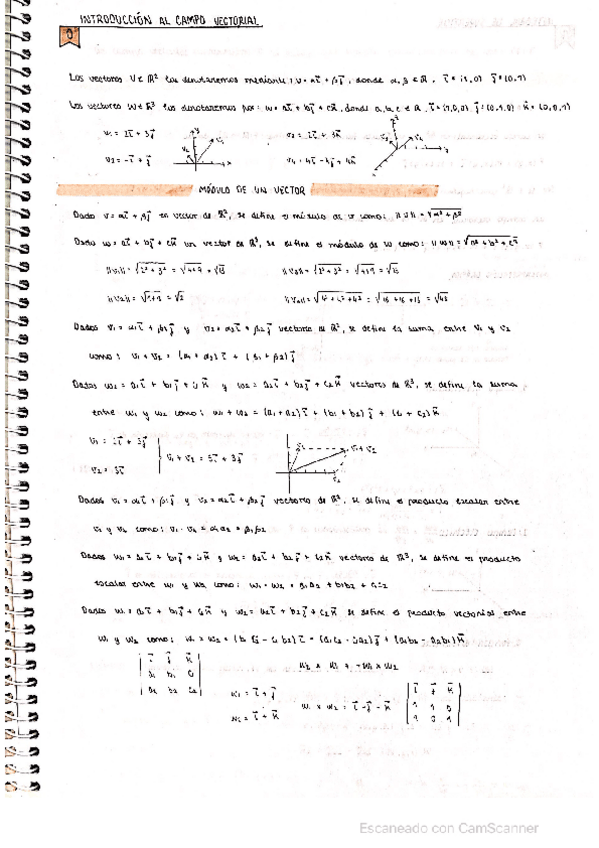 INTRODUCCIÓN AL CAMPO VECTORIAL
Los vectores V ∈ R² los denotaremos mediante: v = αi + βj, donde α, β ∈ R, i = (1,0) j = (0,1)
Los vectores W ∈ R³ los denotaremos por: w = ai + bj + ck, donde a, b, c ∈ R, i = (1,0,0) j = (0,1,0) k = (0,0,1)
v₁ = 2i + 3j
v₂ = 2i + 3k
v₂ = -i + j
v₄ = 4i - 4j + 4k
MÓDULO DE UN VECTOR
Dado v = αi + βj un vector de R², se define el módulo de v como: ||v|| = √α² + β²
Dado w = ai + bj + ck un vector de R³, se define el módulo de w como: ||w|| = √a² + b² + c²
||v₁|| = √2² + 3² = √4+9 = √13
||v₃|| = √2² + 3² = √4+9 = √13
||v₂|| = √1+1 = √2
Dados v₁ = α₁i + β₁j y v₂ = α₂i + β₂j vectores de R², se define la suma entre v₁ y v₂
como: v₁ + v₂ = (α₁ + α₂)i + (β₁ + β₂)j
Dados w₁ = a₁i + b₁j + c₁k y w₂ = a₂i + b₂j + c₂k vectores de R³, se define la suma
entre w₁ y w₂ como: w₁ + w₂ = (a₁ + a₂)i + (b₁ + b₂)j + (c₁ + c₂)k
v₁ = 2i + 3j
v₁ + v₂ = 5i + 3j
v₂ = 3i
v₁ + v₂
Dados v₁ = α₁i + β₁j y v₂ = α₂i + β₂j vectores de R², se define el producto escalar entre
v₁ y v₂ como: v₁ · v₂ = α₁α₂ + β₁β₂
Dados w₁ = a₁i + b₁j + c₁k y w₂ = a₂i + b₂j + c₂k vectores de R³, se define el producto
escalar entre w₁ y w₂ como: w₁ · w₂ = a₁a₂ + b₁b₂ + c₁c₂
Dados w₁ = a₁i + b₁j + c₁k y w₂ = a₂i + b₂j + c₂k se define el producto vectorial entre
w₁ y w₂ como:
i j k
a₁ b₁ c₁
a₂ b₂ c₂
w₁ = i + j
w₂ = i + k
w₁ x w₂ = i - j - k
i j k
1 1 0
1 0 1
Escaneado con CamScanner